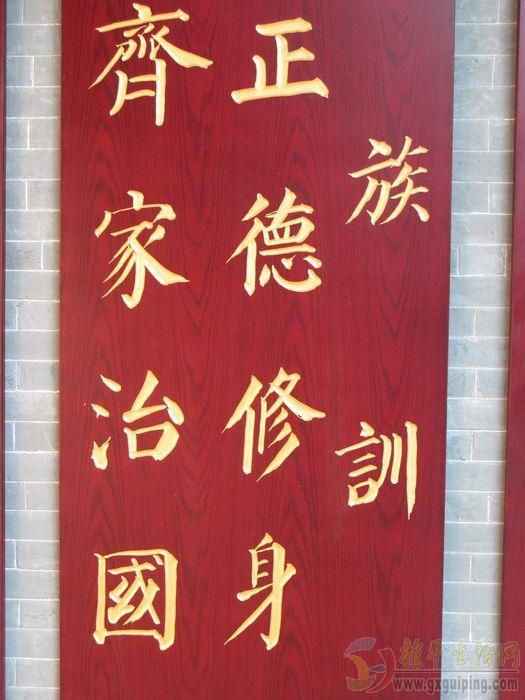 族訓
正德修身
齊家治國
桂平生活网
www.gxguiping.com